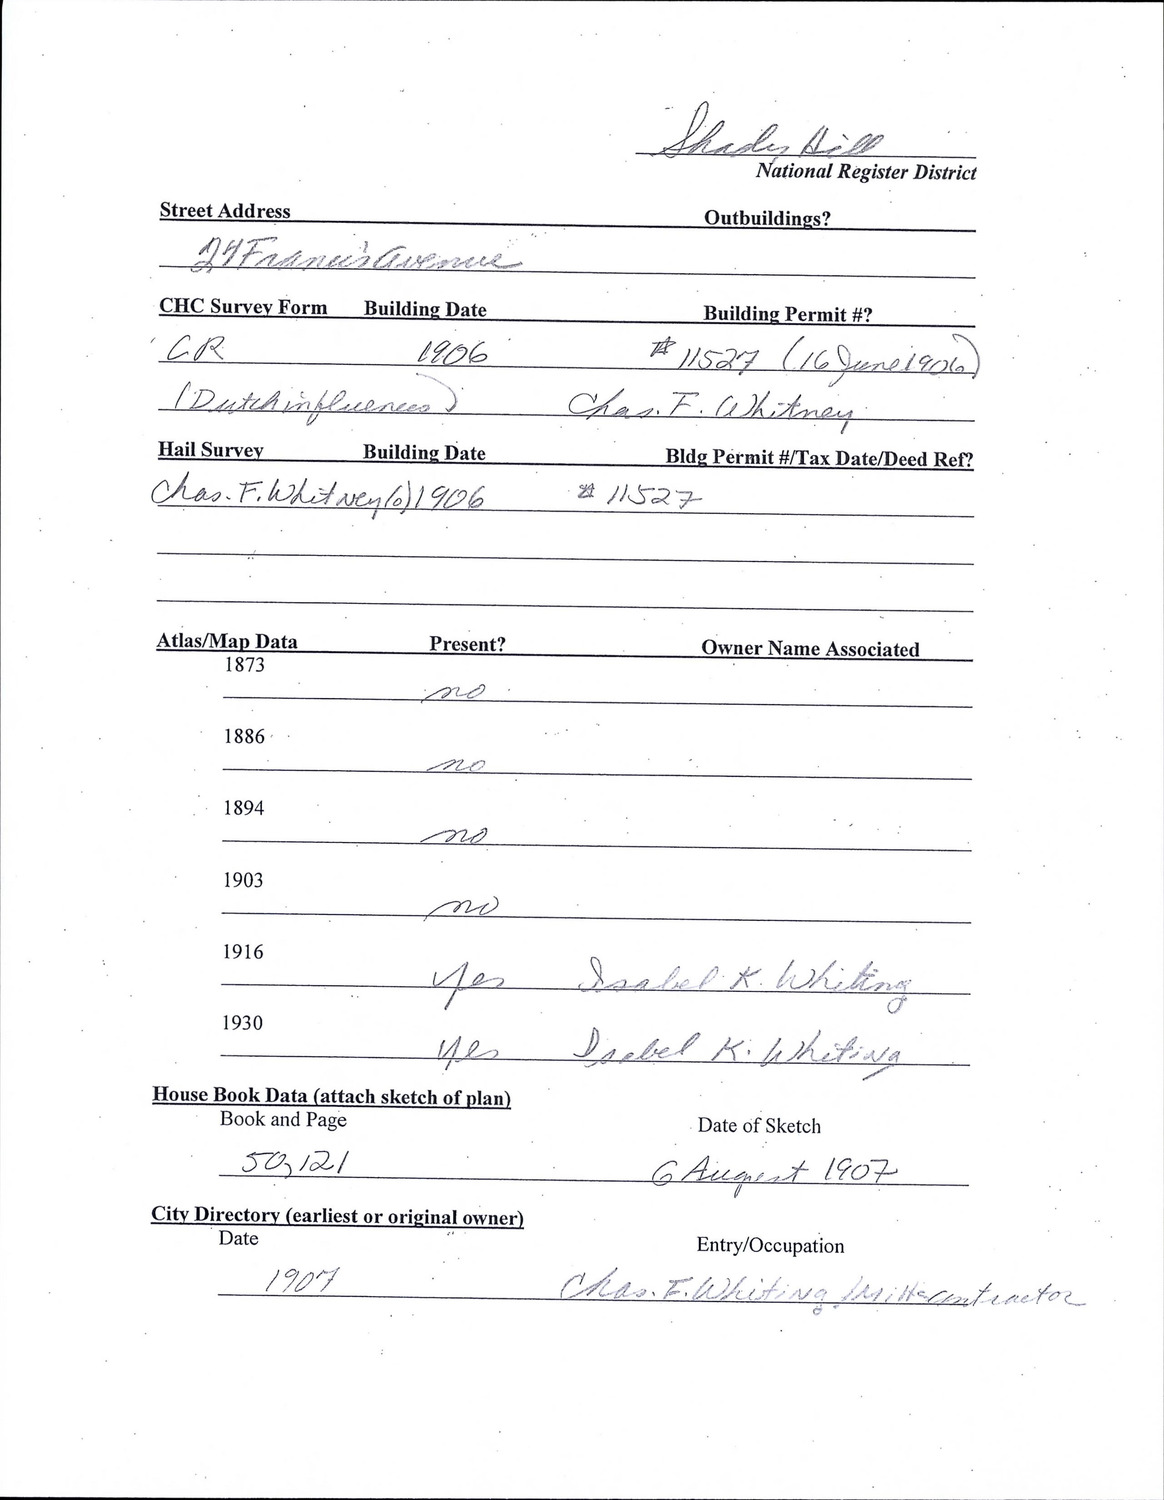 Shady Hill
National Register District
Street Address Outbuildings?
24 Francis Avenue
CHC Survey Form Building Date Building Permit #?
CR 1906 # 11527 (16 June 1906)
(Dutch influences) Chas. F. Whitney
Hail Survey Building Date Bldg Permit #/Tax Date/Deed Ref?
Chas. F. Whitney (o) 1906 # 11527
Atlas/Map Data Present? Owner Name Associated
1873
no
1886
no
1894
no
1903
no
1916
yes Isabel K. Whiting
1930
yes Isabel K. Whiting
House Book Data (attach sketch of plan)
Book and Page Date of Sketch
50, 121 6 August 1907
City Directory (earliest or original owner)
Date Entry/Occupation
1907 Chas. F. Whiting contractor